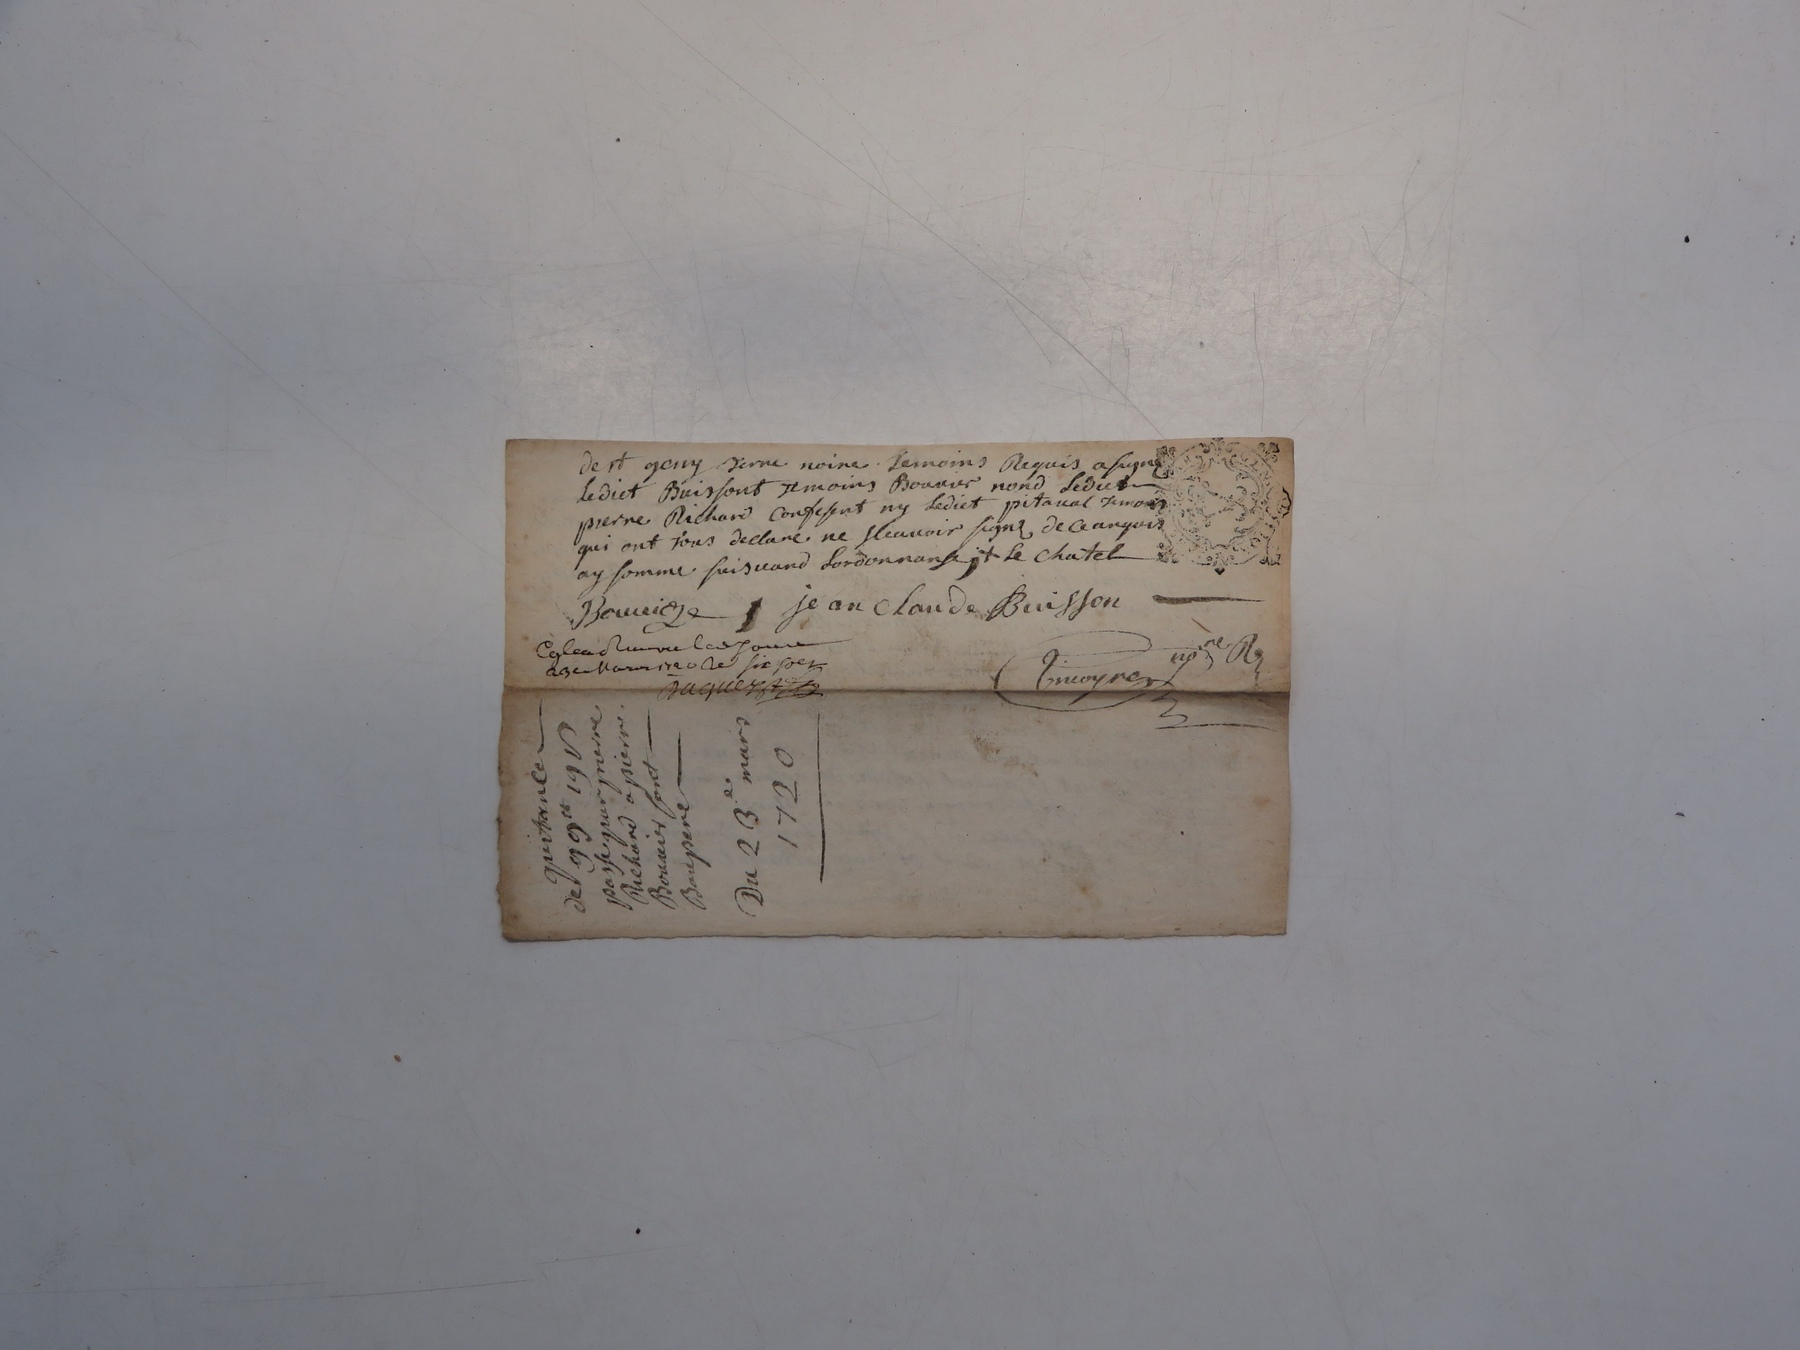 de st geny terre noire temoins Requis a signé
ledict Buissont temoins Bouuier nond ledict
pierre Richard confesent ny ledict pitaual temoin
qui ont tous declare ne scauoir signé de ce anquis
ay somme suiuand lordonnanse st le chatel
jean claude Buisson
le six sols
no.re R
quitance
de 99
passe par pierre
Richard a pierre
Bouuier sont
Baupere
Du 23e mars
1720